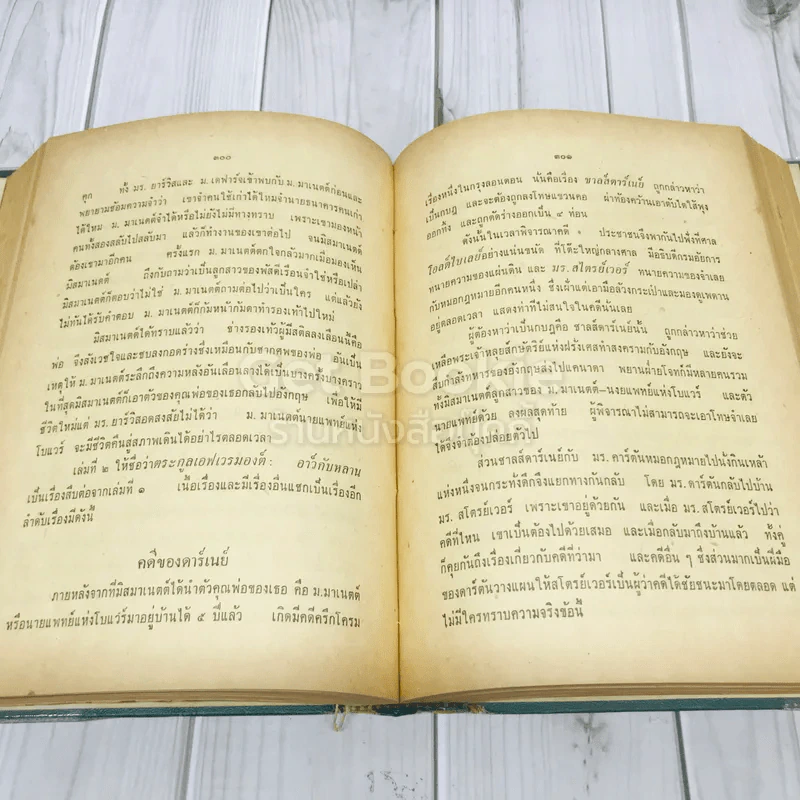 ๓๐๐
คุก ทั้ง มร. ยาร์วิสและ ม. เดฟาร์จเข้าพบกับ ม. มาเนตต์ก่อนและ
พยายามซ้อมความจำว่า เขาจำคนใช้เก่าได้ไหมจำนายธนาคารคนเก่า
ได้ไหม ม. มาเนตต์จำได้หรือไม่ยังไม่มีทางทราบ เพราะเขามองหน้า
คนทั้งสองสลับไปสลับมา แล้วก็ทำงานของเขาต่อไป จนมิสมาเนตต์
ต้องเขามาอีกคน ครั้งแรก ม. มาเนตต์ตกใจกลัวมากเมื่อมองเห็น
มิสมาเนตต์ ถึงกับถามว่าเป็นลูกสาวของพัสดีเรือนจำใช่หรือเปล่า
มิสมาเนตต์ก็ตอบว่าไม่ใช่ ม. มาเนตต์ถามต่อไปว่าเป็นใคร แต่แล้วยัง
ไม่ทันได้รับคำตอบ ม. มาเนตต์ก็ก้มหน้าก้มตาทำรองเท้าไปใหม่
มิสมาเนตต์ได้ทราบแล้วว่า ช่างรองเท้าผู้มีสติลลงเลื่อนนี้คือ
พ่อ จึงสังเวชใจและซบลงกอดร่างซึ่งเหมือนกับซากศพของพ่อ อันเป็น
เหตุให้ ม. มาเนตต์ระลึกถึงความหลังอันเลือนลางได้เป็นบางครั้งบางคราว
ในที่สุดมิสมาเนตต์ก็เอาตัวของคุณพ่อของเธอกลับไปอังกฤษ เพื่อให้มี
ชีวิตใหม่แต่ มร. ยาร์วิสอดสงสัยไม่ได้ว่า ม. มาเนตต์นายแพทย์แห่ง
โบแวร์ จะมีชีวิตคืนสู่สภาพเดิมได้อย่างไรตลอดเวลา
เล่มที่ ๒ ให้ชื่อว่าตระกูลเอฟเวรมองต์ : อาว์กับหลาน
เป็นเรื่องสืบต่อจากเล่มที่ ๑ เนื้อเรื่องและมีเรื่องอื่นแซกเป็นเรื่องอีก
ลำดับเรื่องมีดังนี้
คดีของดาร์เนย์
ภายหลังจากที่มิสมาเนตต์ได้นำตัวคุณพ่อของเธอ คือ ม.มาเนตต์
หรือนายแพทย์แห่งโบแวร์มาอยู่บ้านได้ ๕ ปีแล้ว เกิดมีคดีครึกโครม
๓๐๑
เรื่องหนึ่งในกรุงลอนดอน นั่นคือเรื่อง ชาลส์ดาร์เนย์ ถูกกล่าวหาว่า
เป็นกบฎ และจะต้องถูกลงโทษแขวนคอ ผ่าท้องคว้านเอาตับไตไส้พุง
ออกทิ้ง และถูกตัดร่างออกเป็น ๔ ท่อน
ดังนั้นในเวลาพิจารณาคดี ประชาชนจึงพากันไปฟังที่ศาล
โอลด์ไบเลย์อย่างแน่นขนัด ที่โต๊ะใหญ่กลางศาล มีอธิบดีกรมอัยการ
ทนายความของแผ่นดิน และ มร. สไตรย์เวอร์ ทนายความของจำเลย
กับหมอกฎหมายอีกคนหนึ่ง ซึ่งเฝ้าแต่เอามือล้วงกระเป๋าและมองดูเพดาน
อยู่ตลอดเวลา แสดงท่าทีไม่สนใจในคดีนั้นเลย
ผู้ต้องหาว่าเป็นกบฎคือ ชาลส์ดาร์เนย์นั้น ถูกกล่าวหาว่าช่วย
เหลือพระเจ้าหลุยส์กษัตริย์แห่งฝรั่งเศสทำสงครามกับอังกฤษ และยังจะ
สืบกำลังทหารของอังกฤษลงไปแคนาดา พยานฝ่ายโจทก์มีหลายคนรวม
ทั้งมิสมาเนตต์ลูกสาวของ ม. มาเนตต์-นงยแพทย์แห่งโบแวร์ และตัว
นายแพทย์ด้วย ลงผลสุดท้าย ผู้พิจารณาไม่สามารถจะเอาโทษจำเลย
ได้จึงจำต้องปล่อยตัวไป
ส่วนชาลส์ดาร์เนย์กับ มร. คาร์ตันหมอกฎหมายไปนั่งกินเหล้า
แห่งหนึ่งจนกระทั่งดึกจึงแยกทางกันกลับ โดย มร. ดาร์ตันกลับไปบ้าน
มร. สไตรย์เวอร์ เพราะเขาอยู่ด้วยกัน และเมื่อ มร. สไตรย์เวอร์ไปว่า
คดีที่ไหน เขาเป็นต้องไปด้วยเสมอ และเมื่อกลับมาถึงบ้านแล้ว ทั้งคู่
ก็คุยกันถึงเรื่องเกี่ยวกับคดีที่ว่ามา และคดีอื่น ๆ ซึ่งส่วนมากเป็นฝีมือ
ของดาร์ตันวางแผนให้สไตรย์เวอร์เป็นผู้ว่าคดีได้ชัยชนะมาโดยตลอด แต่
ไม่มีใครทราบความจริงข้อนี้